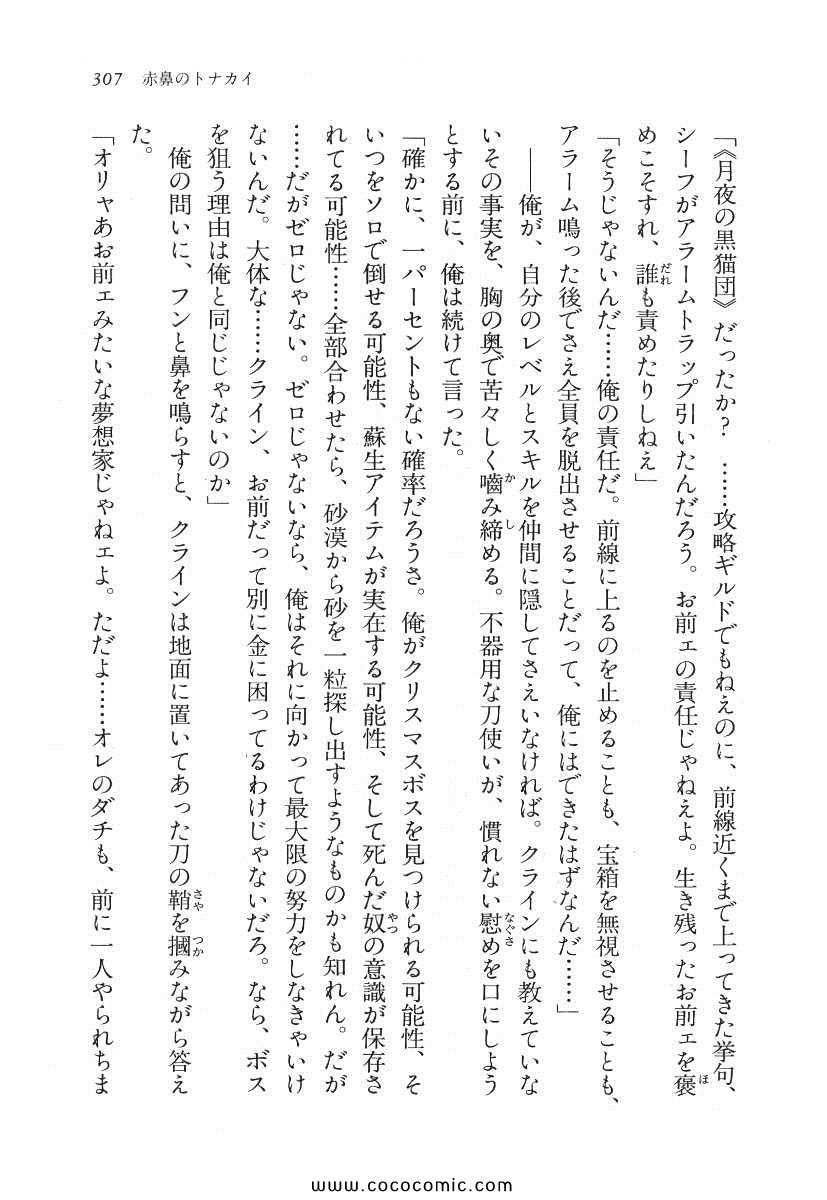 307　赤鼻のトナカイ
「《月夜の黒猫団》だったか？　……攻略ギルドでもねえのに、前線近くまで上ってきた挙句、
シーフがアラームトラップ引いたんだろう。お前ェの責任じゃねえよ。生き残ったお前ェを褒
めこそすれ、誰も責めたりしねえ」
「そうじゃないんだ……俺の責任だ。前線に上るのを止めることも、宝箱を無視させることも、
アラーム鳴った後でさえ全員を脱出させることだって、俺にはできたはずなんだ……」
――俺が、自分のレベルとスキルを仲間に隠してさえいなければ。クラインにも教えていな
いその事実を、胸の奥で苦々しく嚙み締める。不器用な刀使いが、慣れない慰めを口にしよう
とする前に、俺は続けて言った。
「確かに、一パーセントもない確率だろうさ。俺がクリスマスボスを見つけられる可能性、そ
いつをソロで倒せる可能性、蘇生アイテムが実在する可能性、そして死んだ奴の意識が保存さ
れてる可能性……全部合わせたら、砂漠から砂を一粒探し出すようなものかも知れん。だが
……だがゼロじゃない。ゼロじゃないなら、俺はそれに向かって最大限の努力をしなきゃいけ
ないんだ。大体な……クライン、お前だって別に金に困ってるわけじゃないだろ。なら、ボス
を狙う理由は俺と同じじゃないのか」
俺の問いに、フンと鼻を鳴らすと、クラインは地面に置いてあった刀の鞘を摑みながら答え
た。
「オリャあお前ェみたいな夢想家じゃねェよ。ただよ……オレのダチも、前に一人やられちま
www.cococomic.com